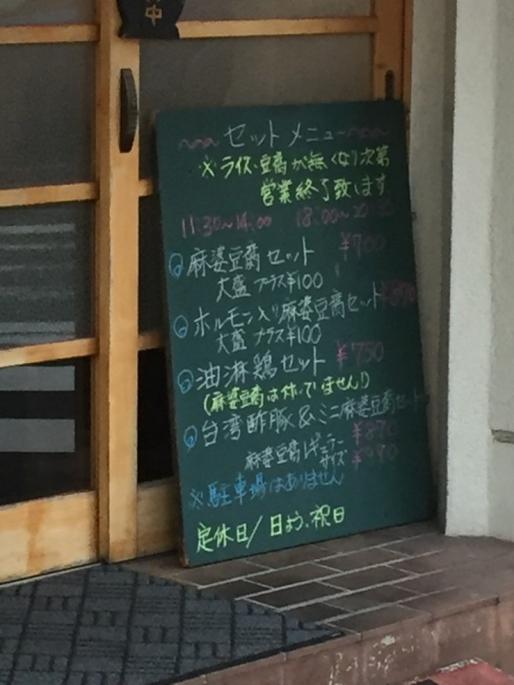 中
セットメニュー
※ライス、豆腐が無くなり次第
営業終了致します
11:30〜14:00 18:00〜
麻婆豆腐セット ¥700
大盛プラス¥100
ホルモン入り麻婆豆腐セット
大盛プラス¥100
油淋鶏セット ¥750
(麻婆豆腐は付いていません!)
台湾酢豚&ミニ麻婆豆腐セット
¥870
麻婆豆腐レギュラーサイズ ¥970
※駐車場はありません
定休日/日よう、祝日